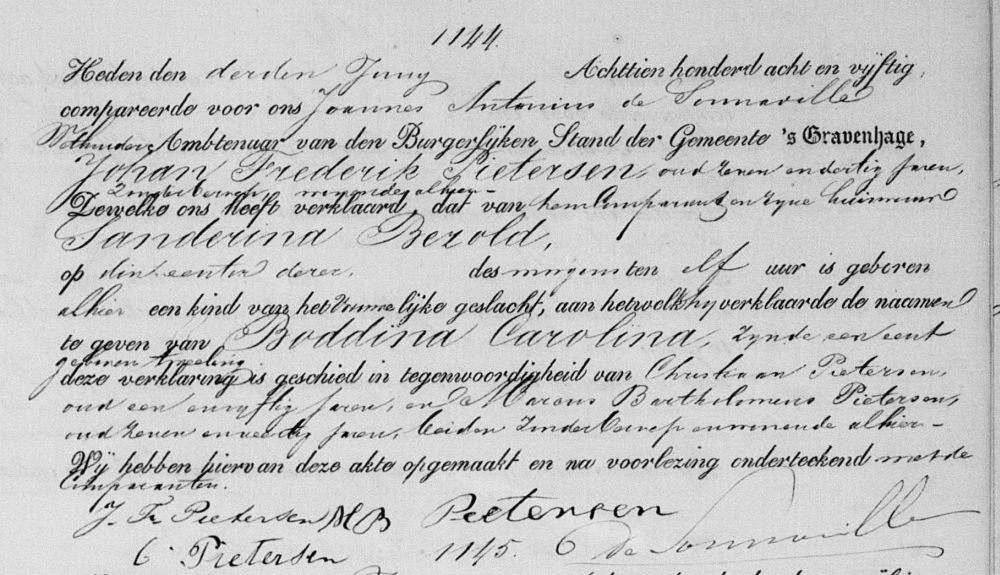 1144.
Heden den derden Juny Achttien honderd acht en vijftig,
compareerde voor ons Joannes Antonius de Sonnaville
Wethouder, Ambtenaar van den Burgerlijken Stand der Gemeente 's Gravenhage,
Johan Frederik Pietersen, oud zeven en dertig Jaren,
zonder beroep, wonende alhier –
Dewelke ons heeft verklaard, dat van hem Comparant en zyne huisvrouw
Sanderina Bezold,
op den eersten dezer, des morgens ten elf uur is geboren
alhier een kind van het vrouwelijke geslacht, aan hetwelk hy verklaarde de naamen
te geven van Boddina Carolina, zynde een eerst
geboren tweeling
deze verklaring is geschied in tegenwoordigheid van Christiaan Pietersen,
oud een en vyftig Jaren, en Marcus Bartholomeus Pietersen,
oud zeven en veertig Jaren, beiden zonder beroep en wonende alhier –
Wij hebben hiervan deze akte opgemaakt en na voorlezing onderteekend met de
Comparanten.
J. Fr Pietersen M B Pietersen
C Pietersen 1145. de Sonnaville